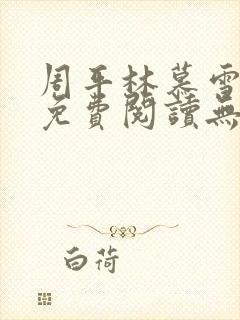 周平林慕雪
免費閱讀無
白荷